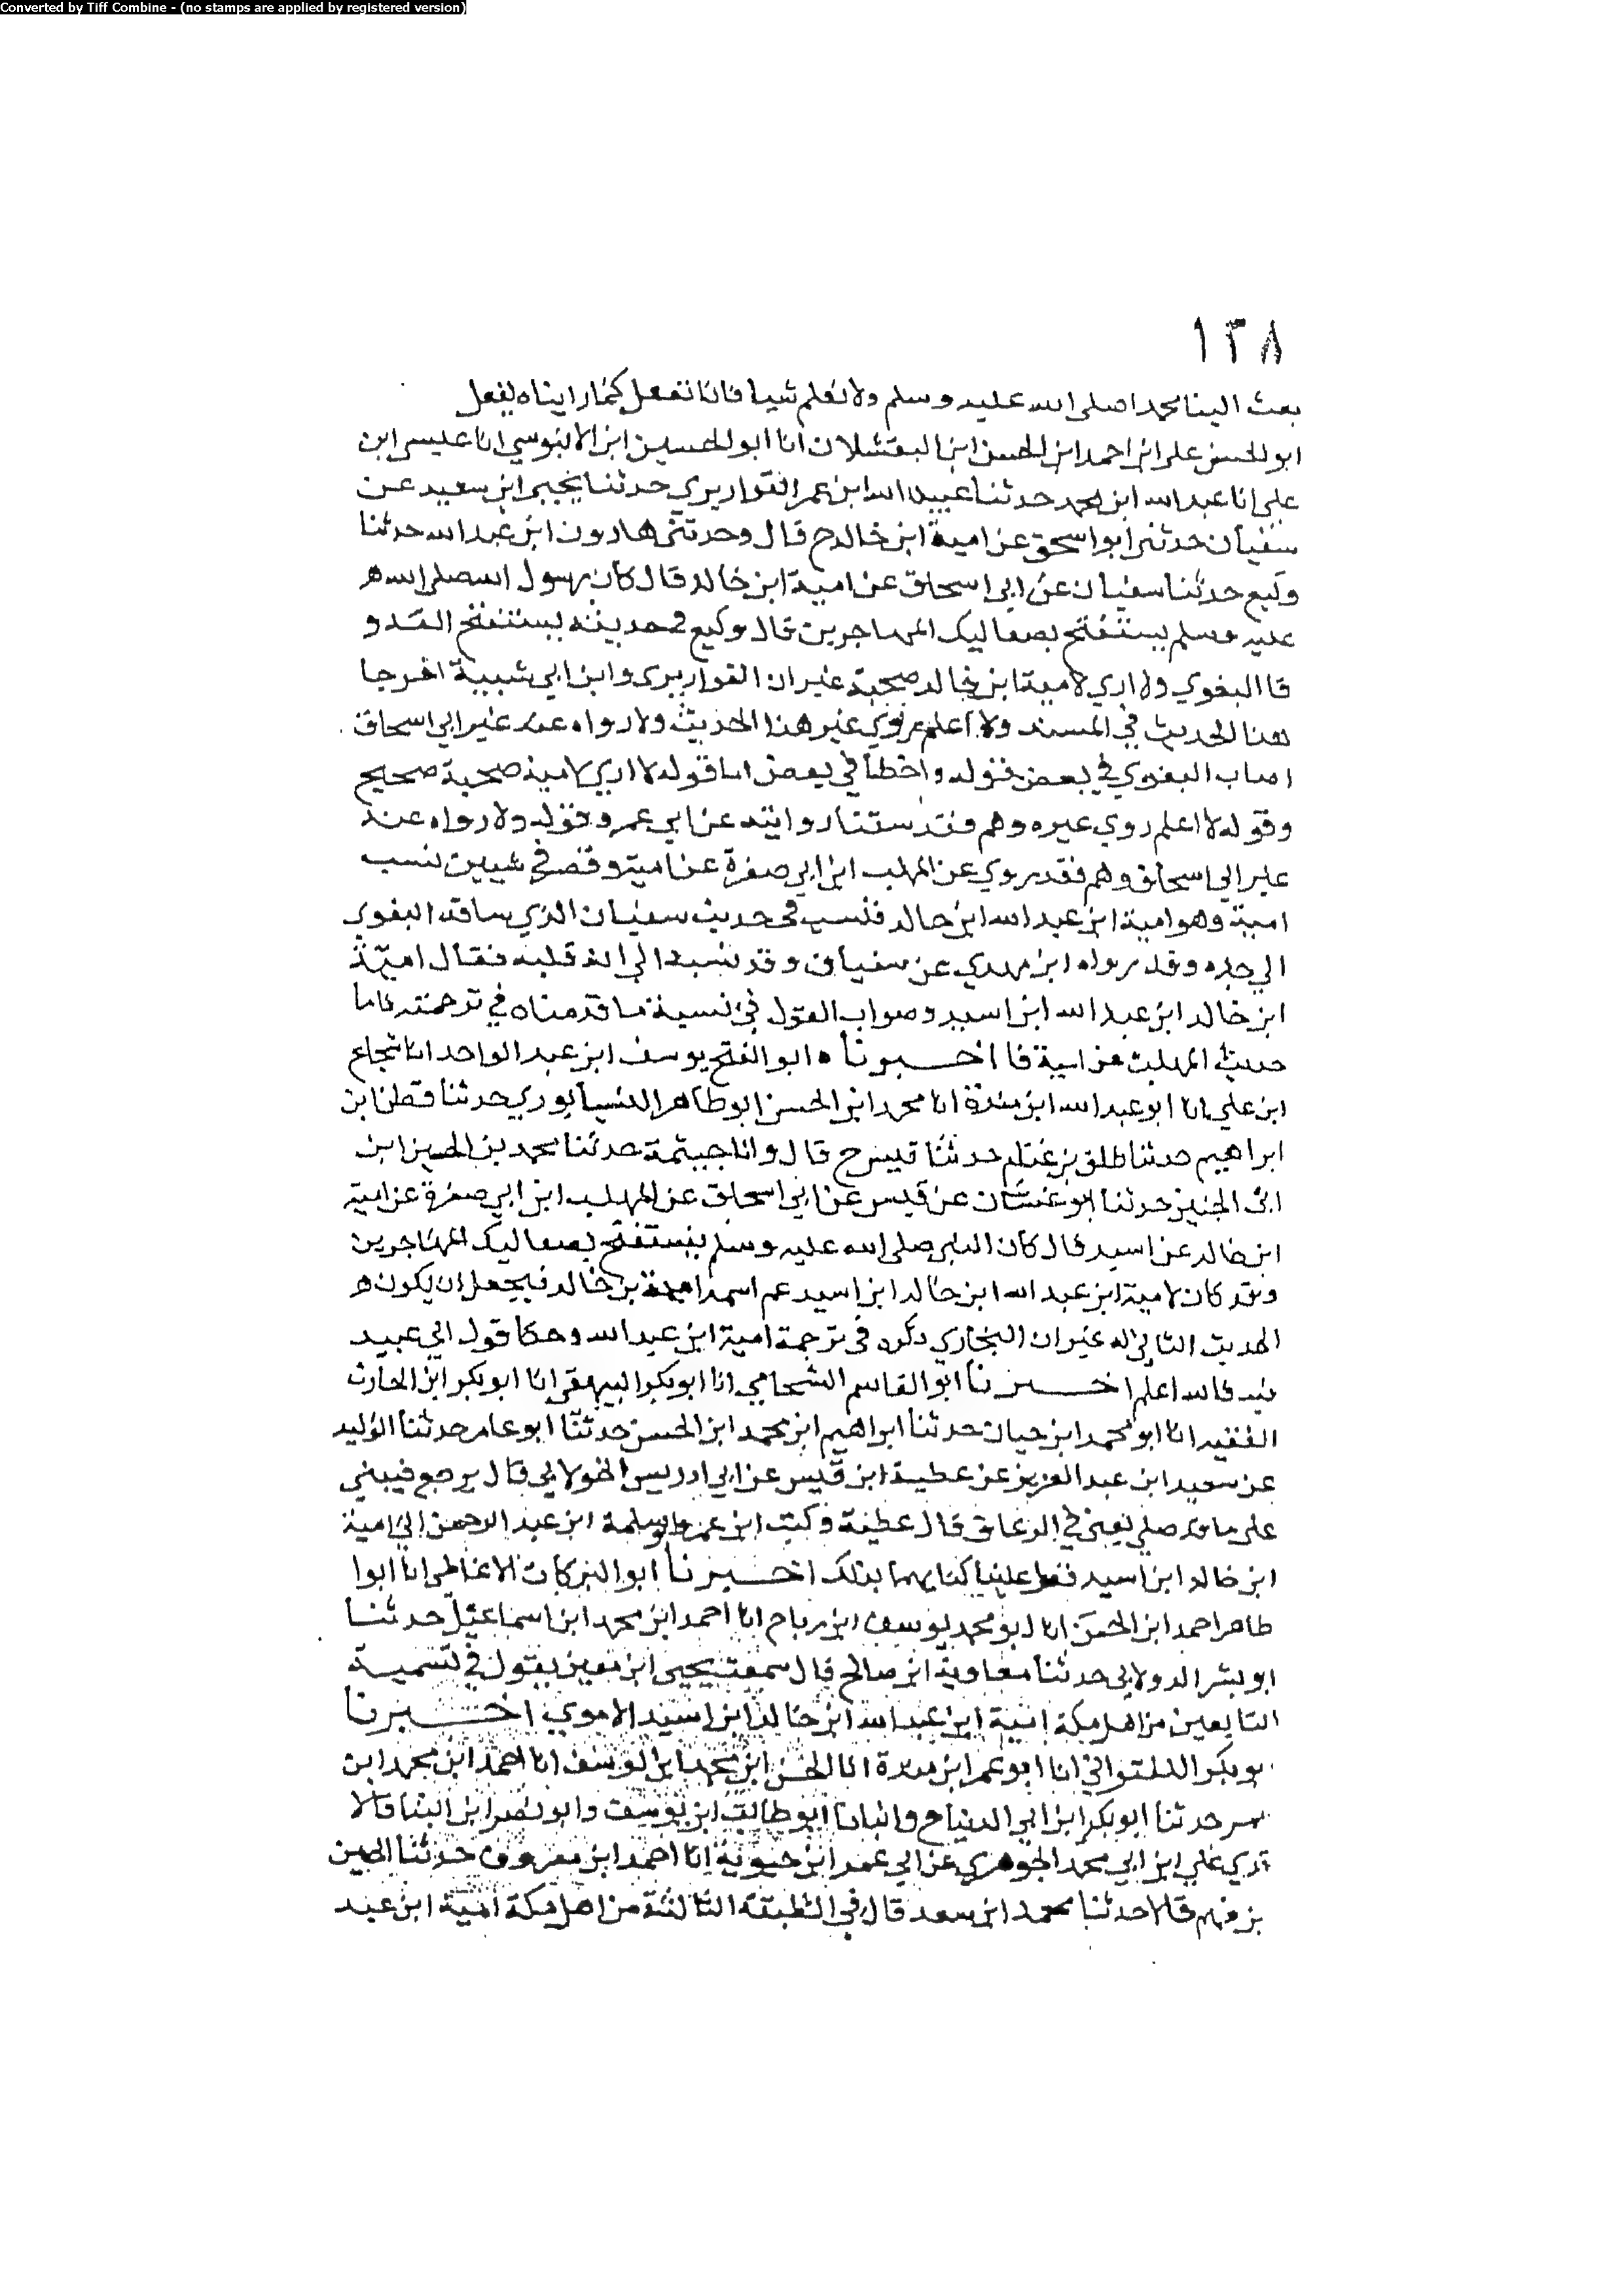 Converted by Tiff Combine - (no stamps are applied by registered version)
١٣٨
بعث الينا محمدا صلى الله عليه وسلم ولا نعلم شيا فانا نفعل كما رايناه يفعل
ابو الحسن على ابن احمد ابن الحسن ابن البقشلان انا ابو الحسين ابن الابنوسي انا عيسى ابن
على انا عبد الله ابن محمد حدثنا عبيد الله ابن عمر القواريري حدثنا يحيى ابن سعيد عن
سفيان حدثنى ابو اسحق عن امية ابن خالد ح قال وحدثنى هارون ابن عبد الله حدثنا
وكيع حدثنا سفيان عن ابى اسحاق عن امية ابن خالد قال كان رسول الله صلى الله
عليه وسلم يستفتح بصعاليك المهاجرين قال وكيع فى حديثه يستفتح العدو
قا البغوي ولا اري لامية ابن خالد صحبة غير ان القواريرى وابن ابي شيبة اخرجا
هذا الحديث في المسند ولا اعلم روي غير هذا الحديث ولا رواه عنه غير ابى اسحاق
اصاب البغوي في بعض قوله واخطأ في بعض اما قوله لا اري لامية صحبة صحيح
وقوله لا اعلم روي غيره وهم فقد روايته عن ابي عمر وقوله ولا رواه عنه
غير ابى اسحاق وهم فقد روي عن المهلب ابن ابي صفرة عن امية وقصر في شيين نسب
امية وهو امية ابن عبد الله ابن خالد فنسب فى حديث سفيان الذي ساقه البغوى
الي جده وقد رواه ابن مهدي عن سفيان وقد نسبه الى انه قلبه فقال امية
ابن خالد ابن عبد الله ابن اسيد وصواب القول في نسبة ما قدمناه في ترجمته فاما
حديث المهلب عن امية فا اخبرناه ابو الفتح يوسف ابن عبد الواحد انا شجاع
ابن علي انا ابو عبد الله ابن مندة انا محمد ابن الحسن ابو طاهر النيسابوري حدثنا قطن ابن
ابراهيم حدثنا طلق بن غنام حدثنا قيس ح قال وانا خيثمة حدثنا محمد بن الحسين ابن
ابى الحنين حدثنا ابو غسان عن قيس عن ابي اسحاق عن المهلب ابن ابي صفرة عن امية
ابن خالد عن اسيد قال كان النبى صلى الله عليه وسلم يستفتح بصعاليك المهاجرين
وقد كان لامية ابن عبد الله ابن خالد ابن اسيد عم اسمه امية بن خالد فيجعل ان يكون
الحديث الثاني له غير ان البخاري ذكره فى ترجمة امية ابن عبد الله وحكا قول ابي عبيد
فيه فالله اعلم اخبرنا ابو القاسم الشحامي انا ابو بكر البيهقى انا ابو بكر ابن الحارث
الفقيه انا ابو محمد ابن حيان حدثنا ابراهيم ابن محمد ابن الحسن حدثنا ابو عامر حدثنا الوليد
عن سعيد ابن عبد العزيز عن عطية ابن قيس عن ابي ادريس الخولاني قال يرجع فيبني
على ما قد صلى يعنى في الرعاف قال عطية وكتب ابن عمر وابو سلمة ابن عبد الرحمن الى امية
ابن خالد ابن اسيد علينا كتابهما بذلك اخبرنا ابو البركات الانماطى انا ابوا
طاهر احمد ابن الحسن انا ابو محمد يوسف ابن رباح انا احمد ابن محمد ابن اسماعيل حدثنا
ابو بشر الدولابى حدثنا معاوية ابن صالح قال سمعت يحيى ابن معين يقول في تسمية
التابعين من اهل مكة امية ابن عبد الله ابن خالد ابن اسيد الاموي اخبرنا
بو بكر اللفتواني انا ابو عمر ابن مندة انا الحسن ابن محمد ابن يوسف انا احمد ابن محمد ابن
عمر حدثنا ابو بكر ابن ابي الدنيا ح وانبانا ابو طالب ابن يوسف وابو نصر ابن البنا قالا
قري علي ابن ابي محمد الجوهري عن ابى عمر ابن حيوية انا احمد ابن معروف حدثنا الحسين
بن فهم قالا حدثنا محمد ابن سعد قال في الطبقة الثالثة من اهل مكة امية ابن عبد